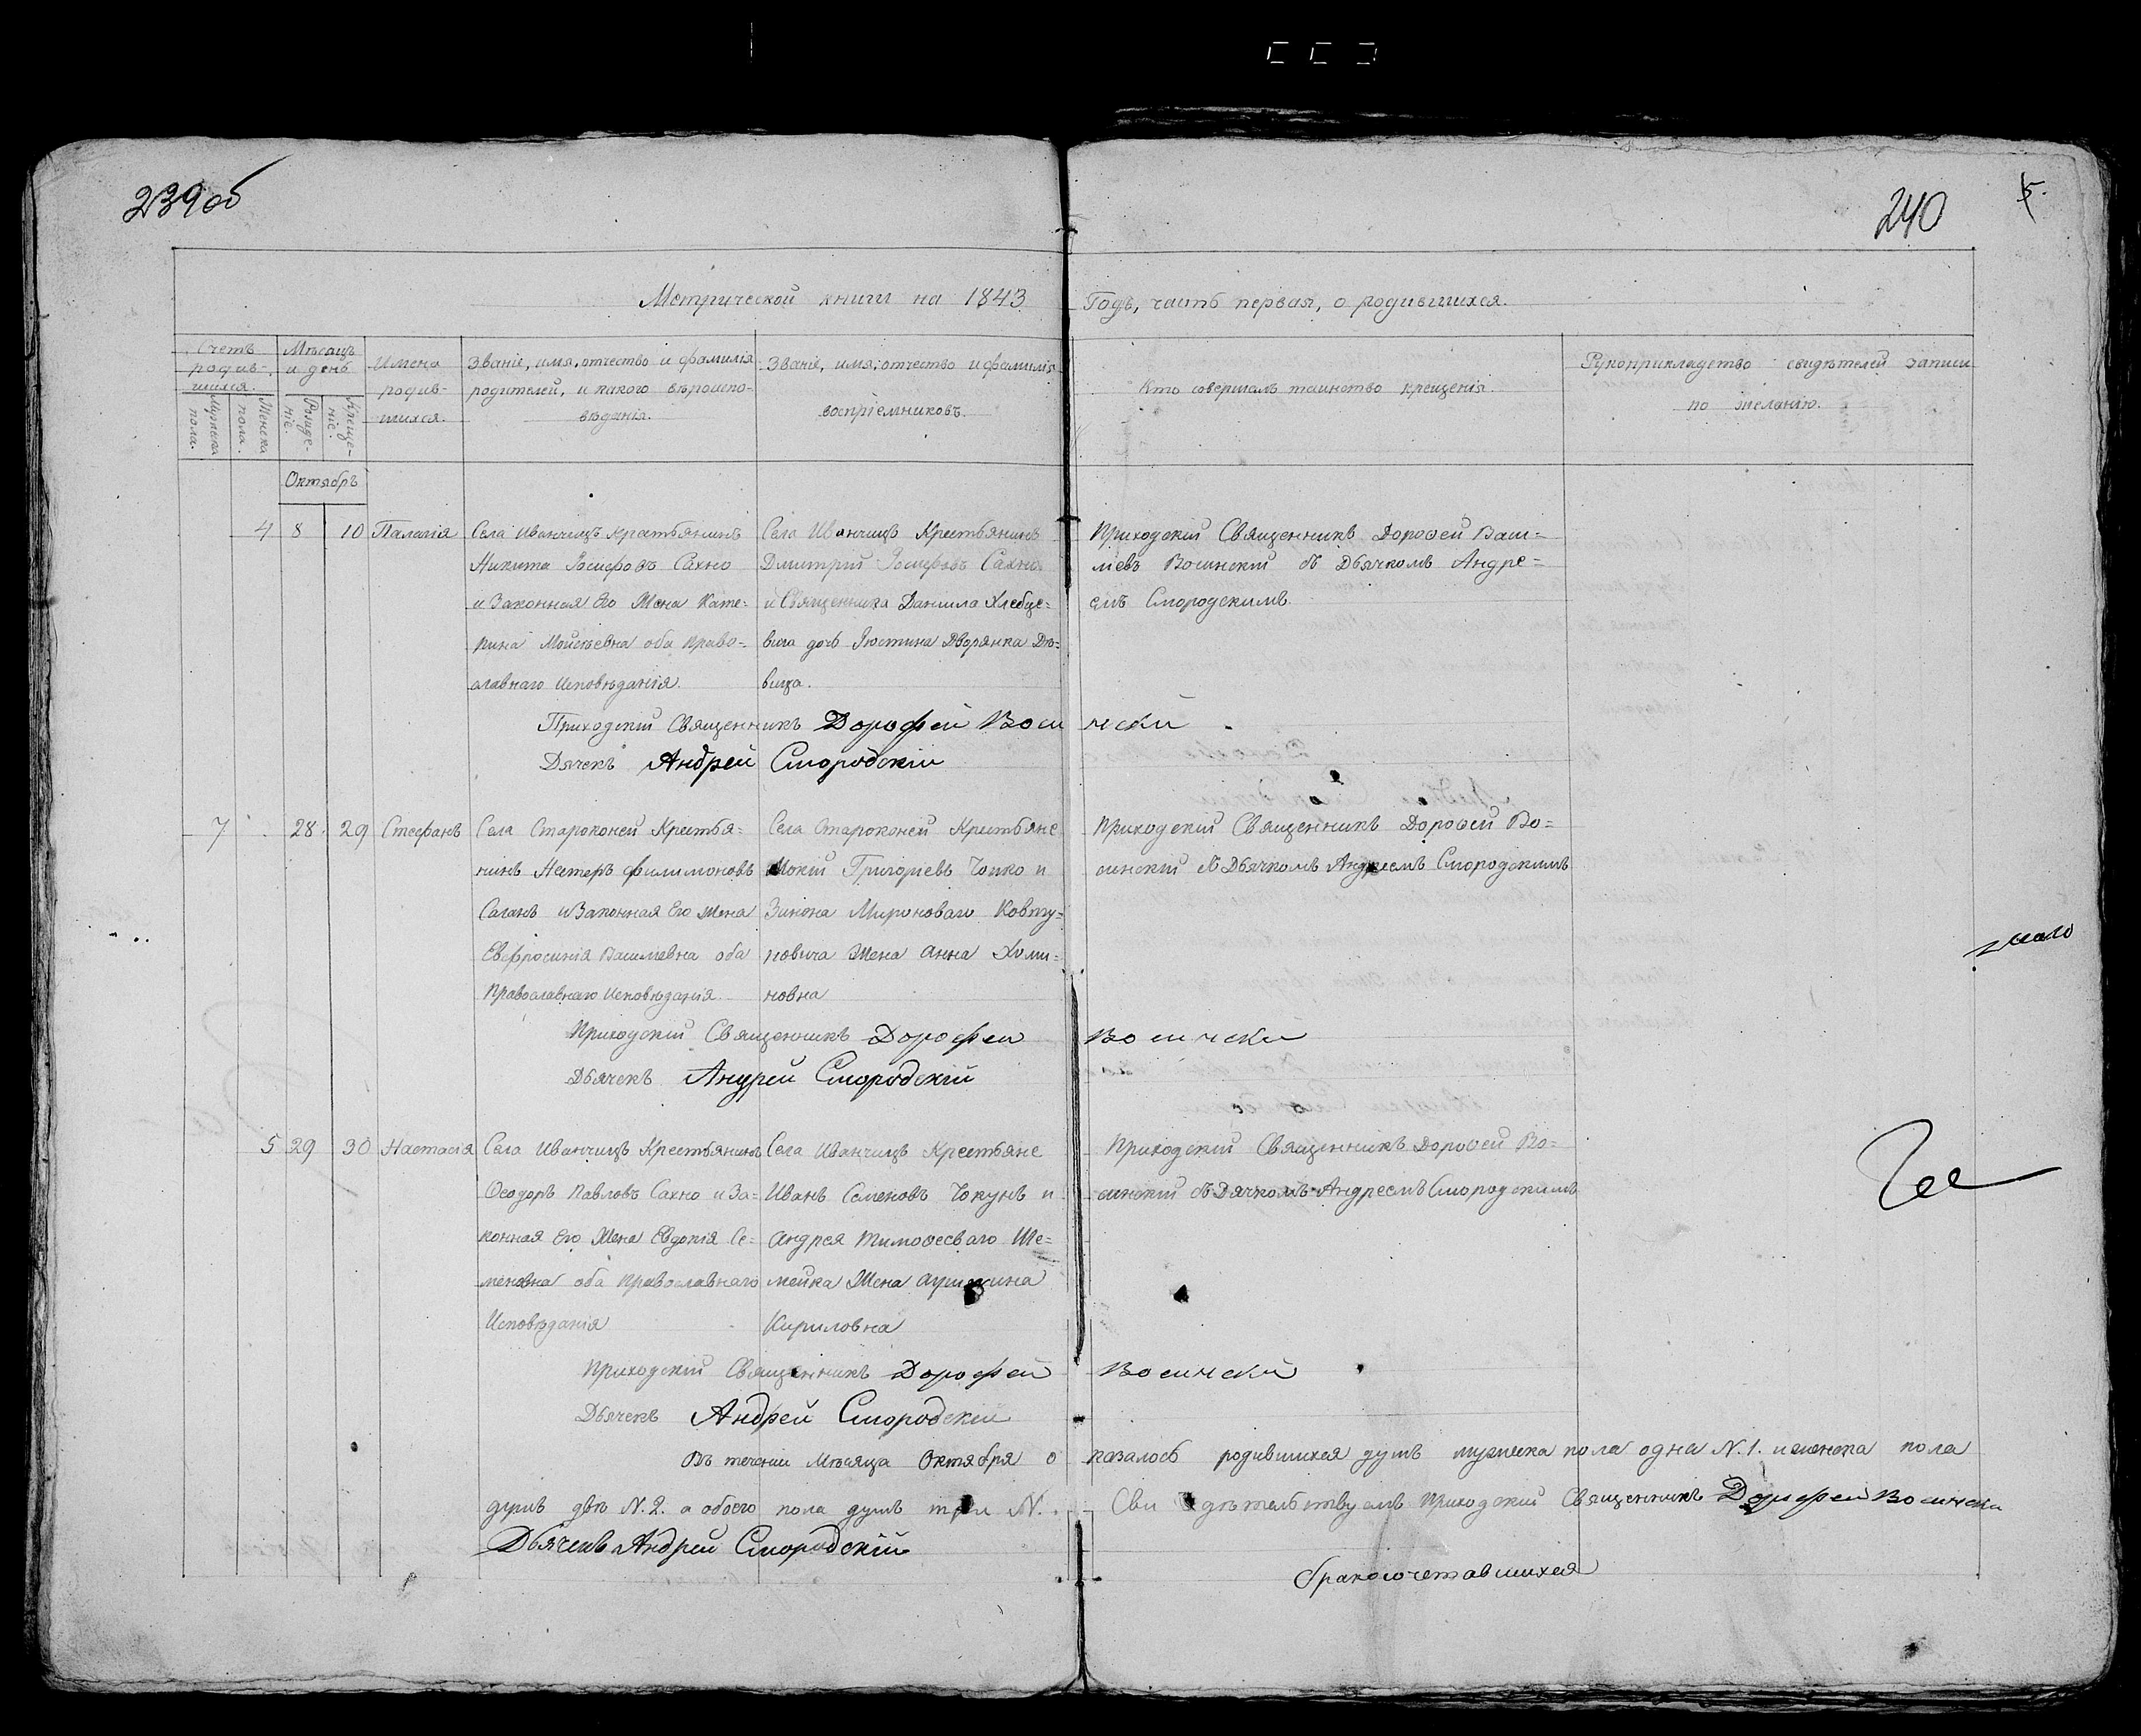 239об
240
5.
Метрической книги на 1843 Годъ, часть первая, о родившихся.
Счетъ родив-шихся.
Мужеска пола.
Женска пола.
Мѣсяцъ и день
Рожде-ніе.
Креще-ніе.
Имена родив-шихся.
Званіе, имя, отчество и фамилія
родителей, и какого вѣроиспо-
вѣданія.
Званіе, имя, отчество и фамилія
воспріемниковъ.
Кто совершалъ таинство крещенія
Рукоприкладство свидѣтелей записи
по желанію.
Октябрь
4 8 10 Палагія
Села Иванчицъ Крестьянинъ
Никита Іосифовъ Сахно
и Законная Его Жена Кате-
рина Мойсѣевна оба право-
славнаго Исповѣданія.
Села Иванчицъ Крестьянинъ
Дмитрій Іосифовъ Сахно
и Священника Даниила Хлебце-
вича дочь Іюстина Дворянка Дѣ-
вица.
Приходскій Священникъ Дорофей Васи=
ліевъ Восинскій съ Дьячкомъ Андре=
емъ Смородскимъ.
Приходскій Священникъ Дорофей Восинскій
Дячекъ Андрей Смородскій
7 28 29 Стефанъ
Села Староконей Крестья=
нинъ Нестеръ Филимоновъ
Саганъ и Законная Его Жена
Евфросинія Василіевна оба
Православнаго Исповѣданія
Села Староконей Крестьяне
Мокій Григорьевъ Чопко и
Зинона Мироноваго Ковту=
новича Жена Анна Хоми=
новна
Приходскій Священникъ Дорофей Во=
синскій съ Дьячкомъ Андреемъ Смородскимъ
Приходскій Священникъ Дорофей Восински
Дьячекъ Андрей Смородскій
5 29 30 Настасія
Села Иванчицъ Крестьянинъ
Ѳеодоръ Павловъ Сахно и За-
конная Его Жена Евдокія Се-
меновна оба православнаго
Исповѣданія
Села Иванчицъ Крестьяне
Иванъ Семеновъ Чокунъ и
Андрея Тимоѳееваго Ше=
мейка Жена
Кириловна
Приходскій Священникъ Дорофей Во=
синскій съ Дячкомъ Андреемъ Смородскимъ
Приходскій Священникъ Дорофей Восинскій
Дьячекъ Андрей Смородскій
Въ теченіи Мѣсяца Октября оказалось родившихся душъ мужеска пола одна N. 1. и женска пола
душъ двѣ N. 2. а обоего пола душъ три N. Свидѣтельствуемъ Приходскій Священникъ Дорофей Восински
Дьячекъ Андрей Смородскій
бракосочетавшихся